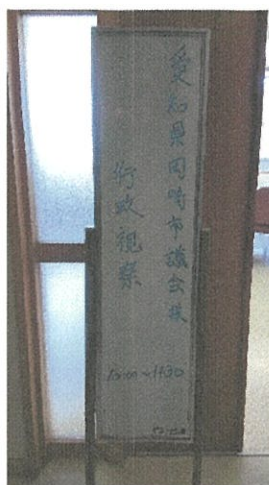 愛知県岡崎市議会様
行政視察
10:00~11:30